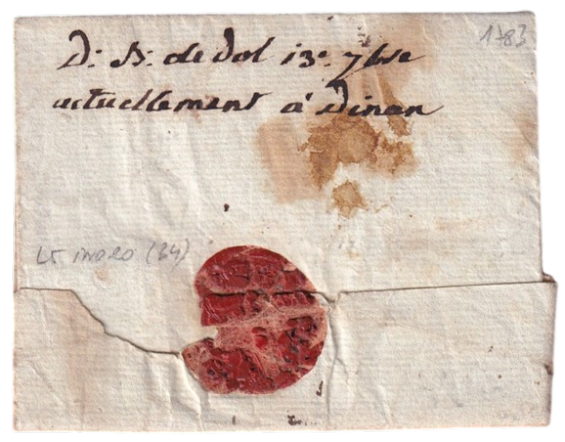 1783
D: B: de Dol 13e 7bre
actuellement à Dinan
LT INDRO (34)